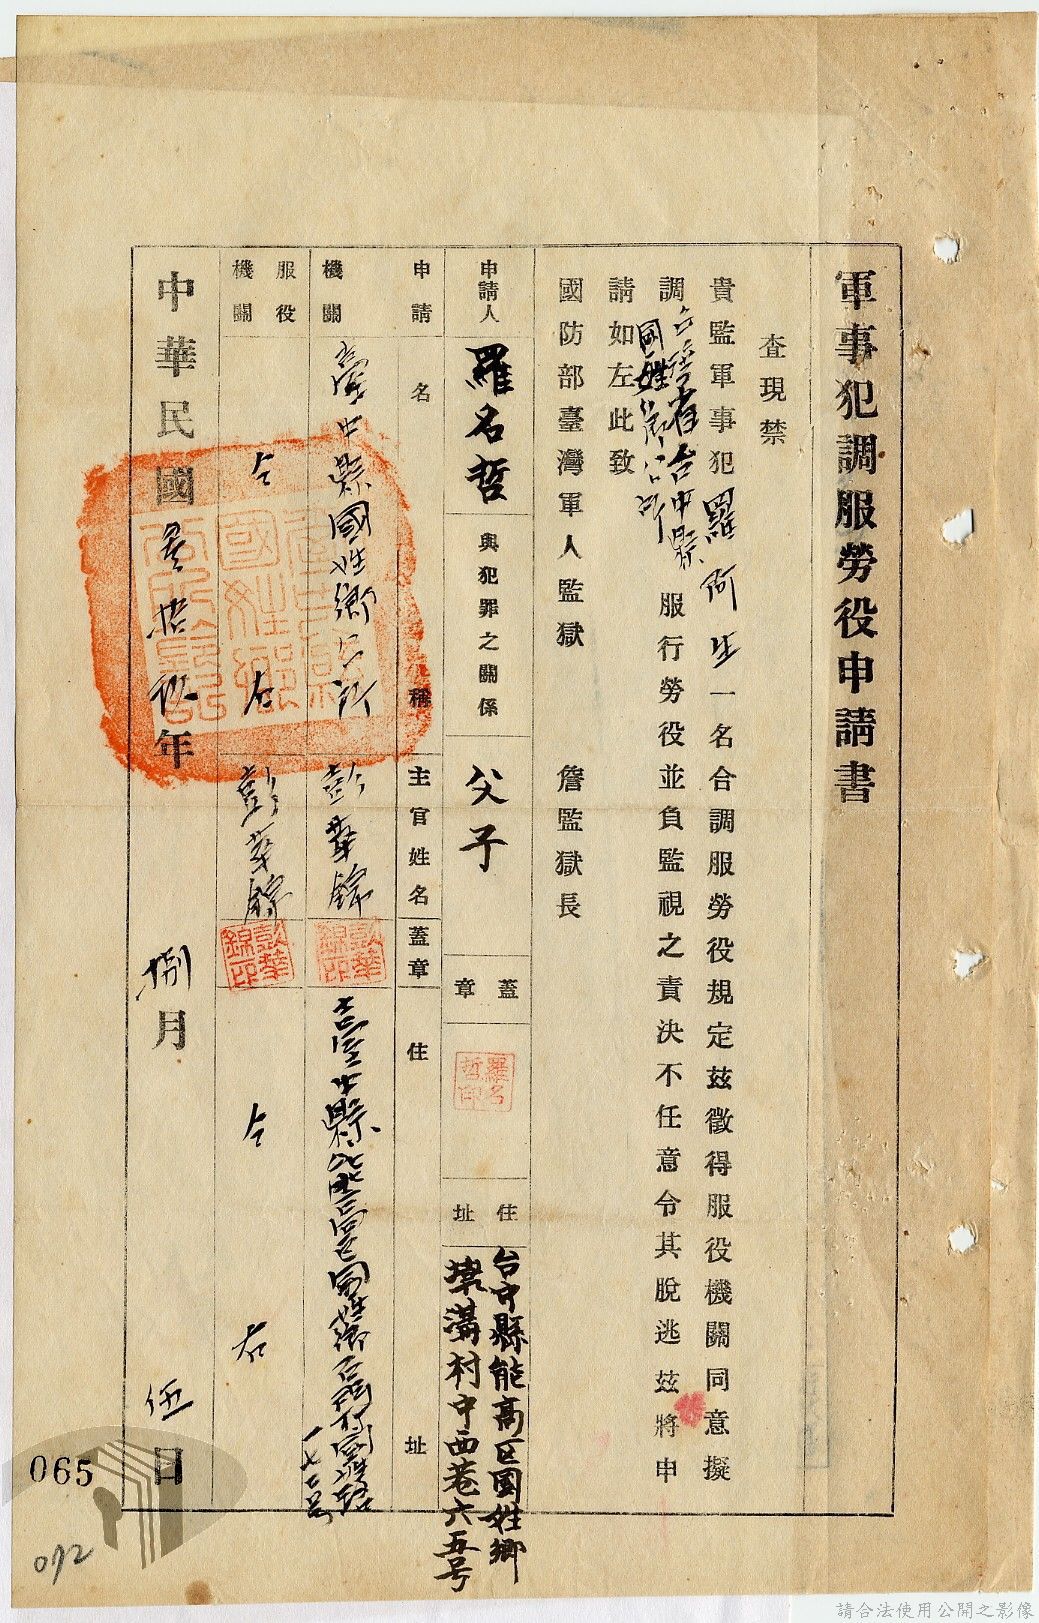 軍事犯調服勞役申請書
查現禁
貴監軍事犯羅阿生一名合調服勞役規定茲徵得服役機關同意擬
調 台中縣國姓鄉公所 服行勞役並負監視之責決不任意令其脫逃茲將申
請如左此致
國防部臺灣軍人監獄 詹監獄長
申請人 羅名哲 與犯罪之關係 父子 蓋章 羅名哲印 住址 台中縣能高区國姓鄉
村中西巷六五号
申請 名稱 主官姓名 蓋章 住址
機關 臺中縣國姓鄉公所 彭華錦 彭華錦印 臺中縣能高區國姓鄉石門村國姓路
服役機關 仝右 彭華錦 彭華錦印 仝右
中華民國 年捌月伍日
065
072
請合法使用公開之影像